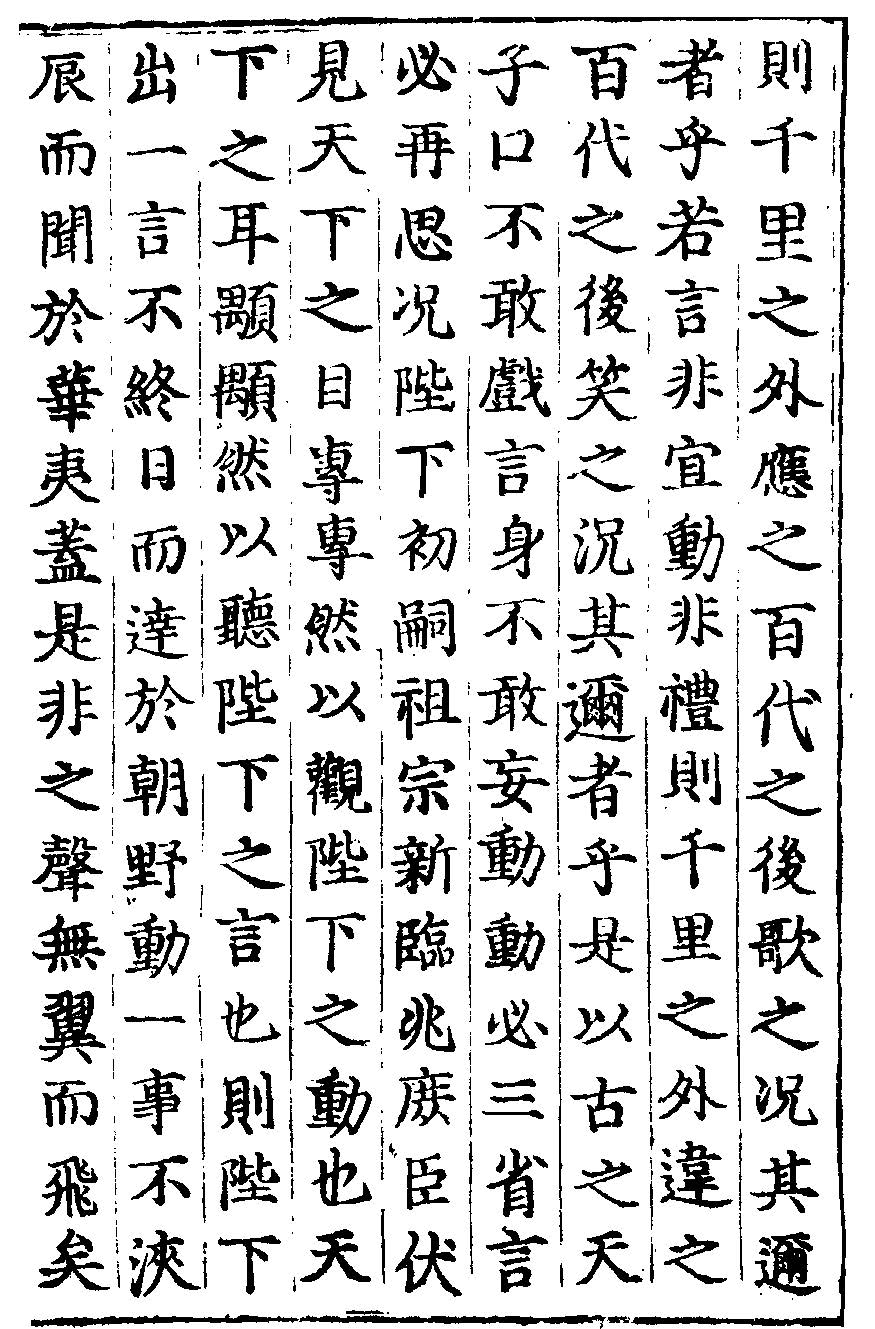 則千里之外應之百代之後歌之况其邇
者乎若言非宜動非禮則千里之外違之
百代之後笑之況其邇者乎是以古之天
子口不敢戲言身不敢妄動動必三省言
必再思况陛下初嗣祖宗新臨兆庻臣伏
見天下之目專專然以觀陛下之動也天
下之耳顒顒然以聽陛下之言也則陛下
出一言不終日而達於朝野動一事不浹
辰而聞於華夷蓋是非之聲無翼而飛矣